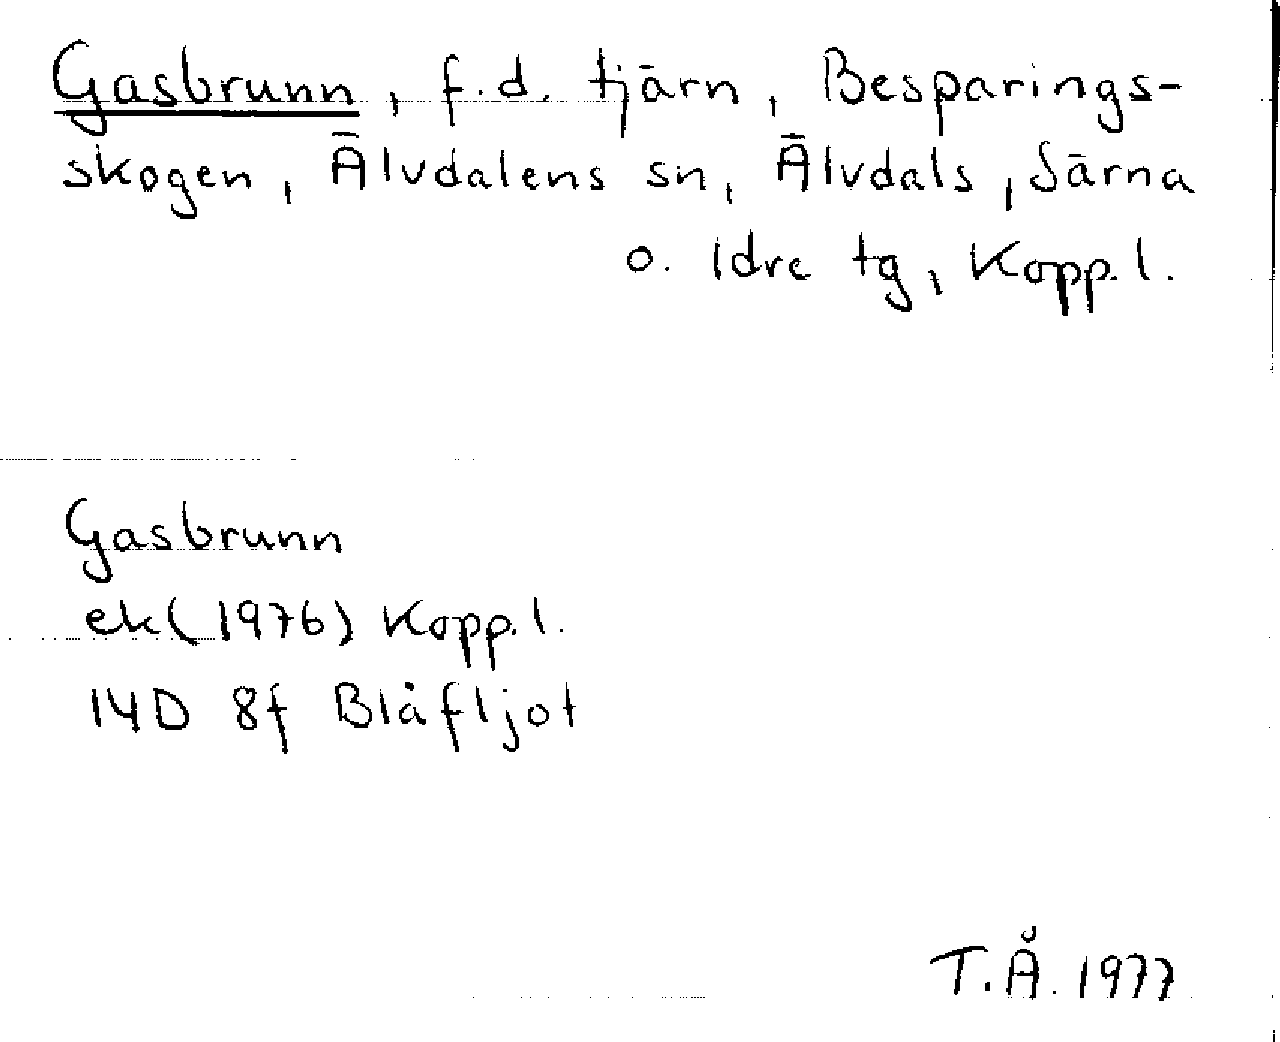 Gasbrunn, f.d. tjärn, Besparings-
skogen, Älvdalens sn, Älvdals, Särna
o. Idre tg, Kopp.l.
Gasbrunn
ek(1976) Kopp.l.
14D 8f Blåfljot
T.Å. 1977